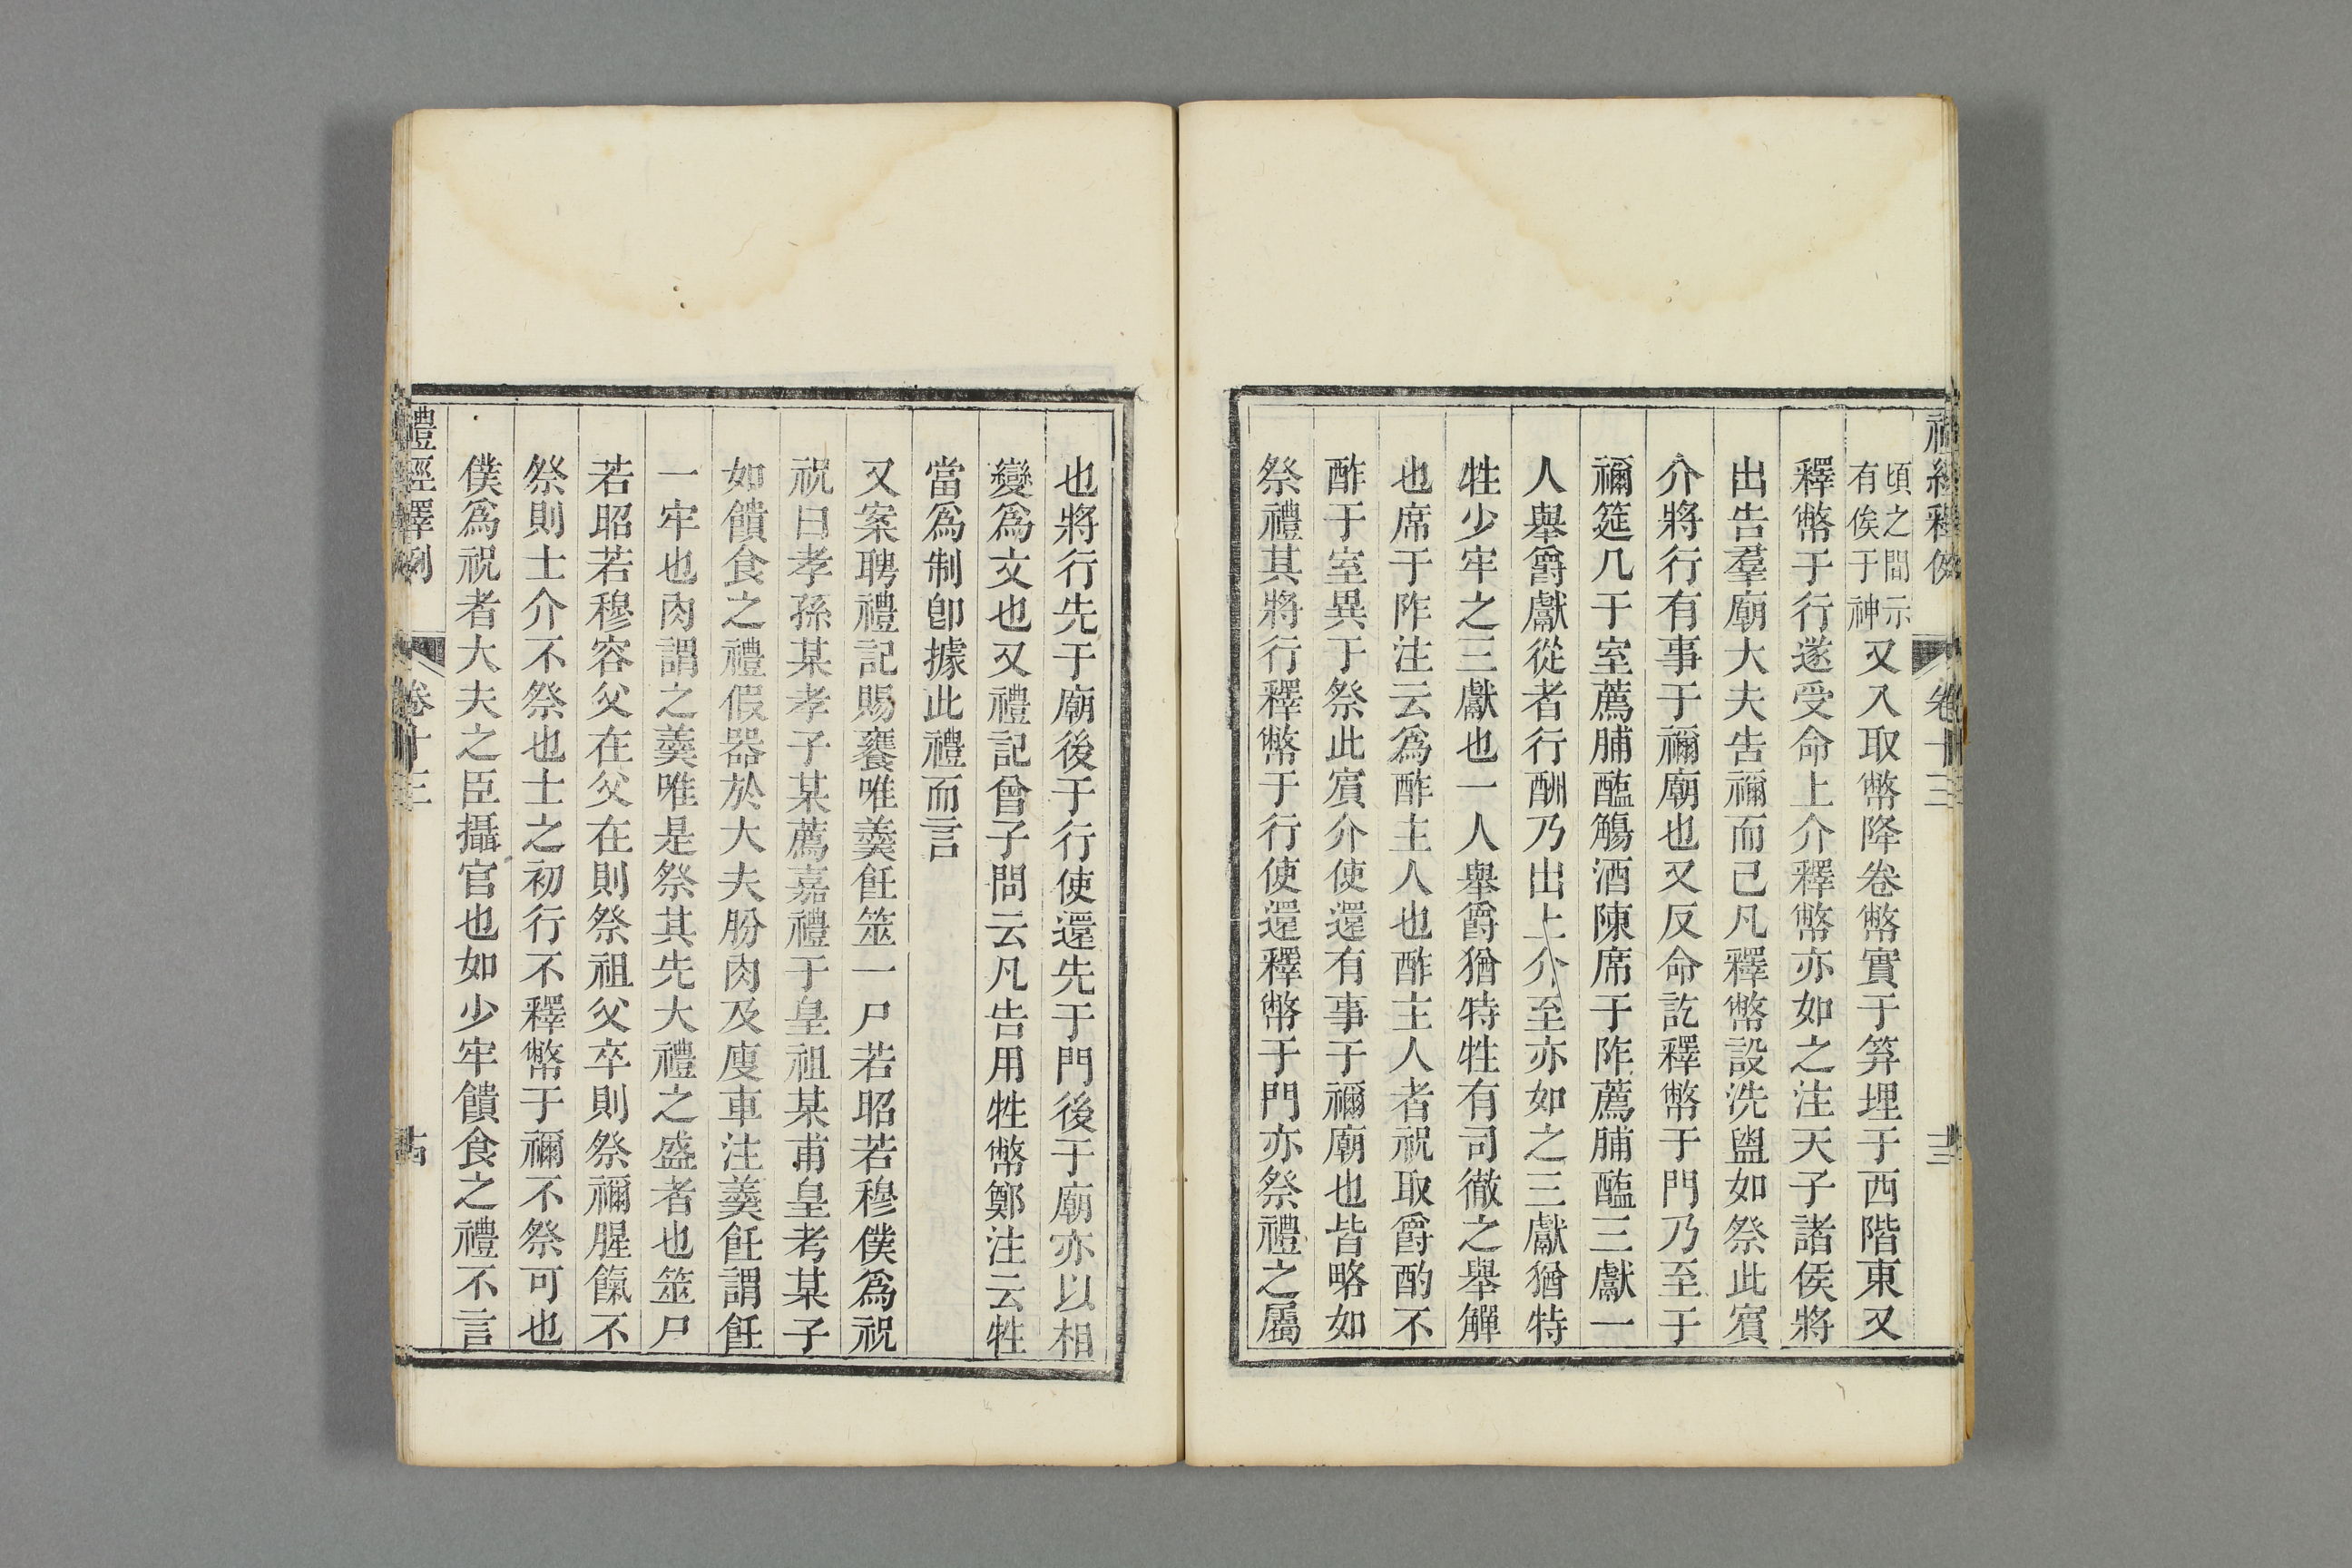 禮經釋例 卷十三 十三
頃之間示有俟于神又入取幣降卷幣實于筭埋于西階東又
釋幣于行遂受命上介釋幣亦如之注天子諸侯將
出告羣廟大夫告禰而已凡釋幣設洗盥如祭此賓
介將行有事于禰廟也又反命訖釋幣于門乃至于
禰筵几于室薦脯醢觴酒陳席于阼薦脯醢三獻一
人舉爵獻從者行酬乃出上介至亦如之三獻猶特
牲少牢之三獻也一人舉爵猶特牲有司徹之舉觶
也席于阼注云爲酢主人也酢主人者祝取爵酌不
酢于室異于祭此賓介使還有事于禰廟也皆略如
祭禮其將行釋幣于行使還釋幣于門亦祭禮之屬
也將行先于廟後于行使還先于門後于廟亦以相
變爲文也又禮記曾子問云凡告用牲幣鄭注云牲
當爲制卽據此禮而言
又案聘禮記賜饔唯羹飪筮一尸若昭若穆僕爲祝
祝曰孝孫某孝子某薦嘉禮于皇祖某甫皇考某子
如饋食之禮假器於大夫肦肉及廋車注羹飪謂飪
一牢也肉謂之羹唯是祭其先大禮之盛者也筮尸
若昭若穆容父在父在則祭祖父卒則祭禰腥餼不
祭則士介不祭也士之初行不釋幣于禰不祭可也
僕爲祝者大夫之臣攝官也如少牢饋食之禮不言
禮經釋例 卷十三 十四